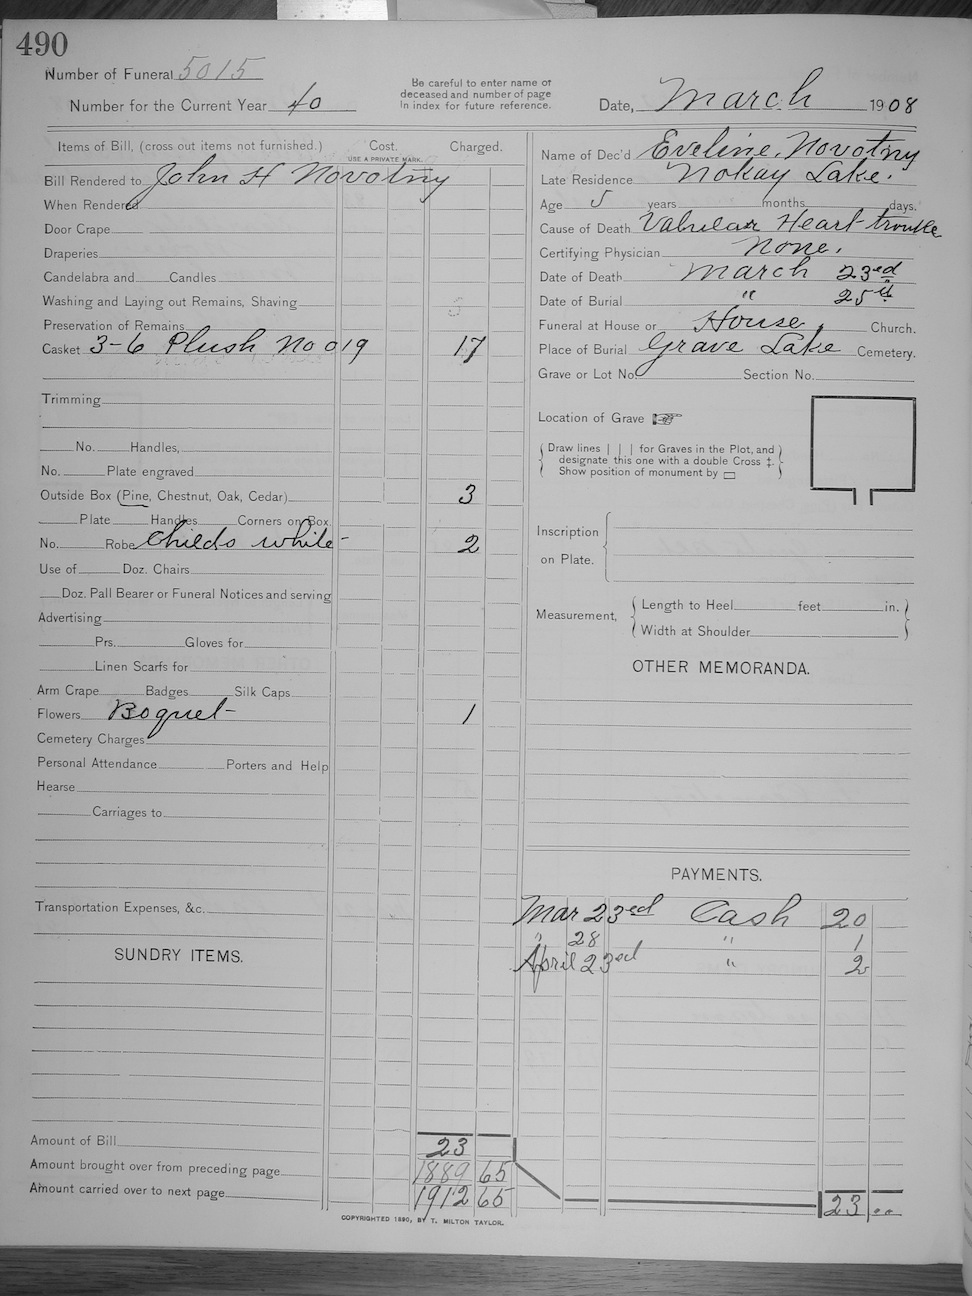 490
Number of Funeral 5015
Number for the Current Year 40
Be careful to enter name of
deceased and number of page
in index for future reference.
Date, March 1908
Items of Bill, (cross out items not furnished.) Cost. Charged.
USE A PRIVATE MARK.
Bill Rendered to John H Novotny
When Rendered
Door Crape
Draperies
Candelabra and Candles
Washing and Laying out Remains, Shaving
Preservation of Remains
Casket 3-6 Plush No 019 17
Trimming
No. Handles,
No. Plate engraved
Outside Box (Pine, Chestnut, Oak, Cedar) 3
Plate Handles Corners on Box.
No. Robe Childs white- 2
Use of Doz. Chairs
Doz. Pall Bearer or Funeral Notices and serving
Advertising
Prs. Gloves for
Linen Scarfs for
Arm Crape Badges Silk Caps
Flowers Boquet- 1
Cemetery Charges
Personal Attendance Porters and Help
Hearse
Carriages to
Transportation Expenses, &c.
SUNDRY ITEMS.
Amount of Bill 23
Amount brought over from preceding page 1889 65
Amount carried over to next page 1912 65
COPYRIGHTED 1890, BY T. MILTON TAYLOR.
Name of Dec'd Eveline, Novotny
Late Residence Nokay Lake.
Age 5 years months days.
Cause of Death Valvular Heart trouble
Certifying Physician None.
Date of Death March 23rd
Date of Burial " 25th
Funeral at House or House, Church.
Place of Burial Grave Lake Cemetery.
Grave or Lot No. Section No.
Location of Grave
Draw lines | | | for Graves in the Plot, and
designate this one with a double Cross ‡.
Show position of monument by □
Inscription
on Plate.
Measurement,
Length to Heel feet in.
Width at Shoulder
OTHER MEMORANDA.
PAYMENTS.
Mar 23rd Cash 20
" 28 " 1
April 23rd " 2
23 ..